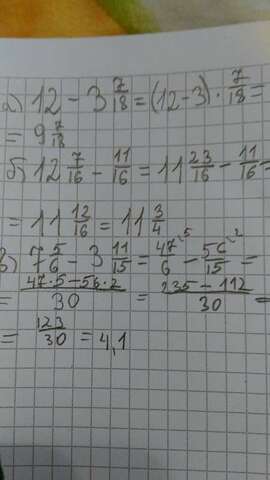 а) 12 - 3 7/18 = (12-3) · 7/18 =
= 9 7/18
б) 12 7/16 - 11/16 = 11 23/16 - 11/16 =
= 11 12/16 = 11 3/4
в) 7 5/6 - 3 11/15 = 47/6 ⁵ - 56/15 ² =
= 47·5-56·2/30 = 235-112/30 =
= 123/30 = 4,1